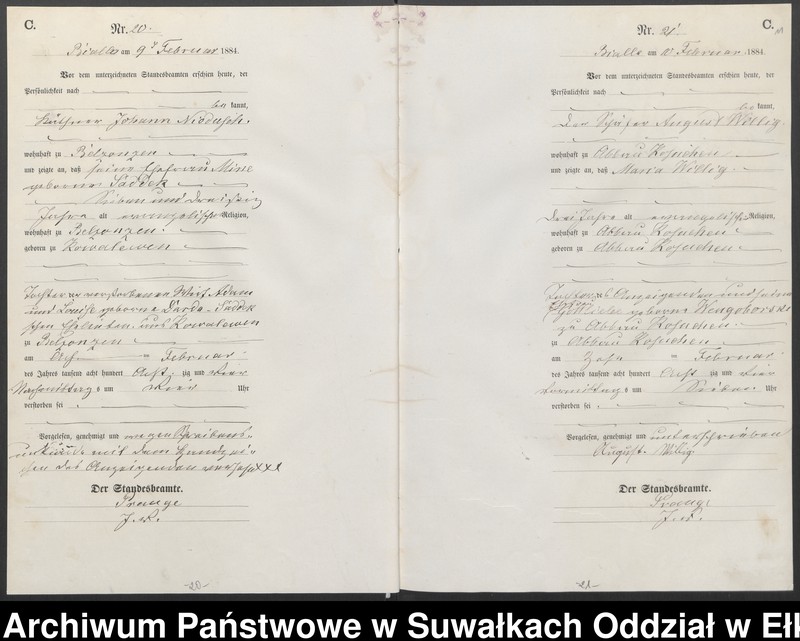 C.
Nr. 20.
Bialla am 9ⁿ Februar 1884.
Vor dem unterzeichneten Standesbeamten erschien heute, der
Persönlichkeit nach
be kannt,
Johann Niodusch.
wohnhaft zu Belzonzen
und zeigte an, daß seine Ehefrau Mine
geborene Saddek
Sieben und dreißig
Jahre alt evangelischer Religion,
wohnhaft zu Belzonzen.
geboren zu Kowalewen
Tochter der verstorbenen Wirt Adam
und Louise geborne Saddek
schen Eheleuten aus Kowalewen
zu Belzonzen
am Acht ten Februar
des Jahres tausend acht hundert Acht zig und vier
Nachmittag s um Vier Uhr
verstorben sei
Vorgelesen, genehmigt und wegen Schreibens-
unkunde mit dem Handzei-
chen des Anzeigenden versehen XXX
Der Standesbeamte.
Prange
J.V.
-20-
C.
Nr. 21
Bialla am 10 Februar 1884.
Vor dem unterzeichneten Standesbeamten erschien heute, der
Persönlichkeit nach
be kannt,
Der Schäfer August Willig.
wohnhaft zu Abbau Kosuchen
und zeigte an, daß Maria Willig
drei Jahre alt evangelischer Religion,
wohnhaft zu Abbau Kosuchen
geboren zu Abbau Kosuchen
Tochter des Anzeigenden und seiner
Ehefrau Gottliebe geborne
zu Abbau Kosuchen
zu Abbau Kosuchen
am Zehn ten Februar
des Jahres tausend acht hundert Acht zig und vier
Vormittag s um Sieben Uhr
verstorben sei
Vorgelesen, genehmigt und unterschrieben
August Willig
Der Standesbeamte.
Prange
J.V.
-21-
Archiwum Państwowe w Suwałkach Oddział w Eł